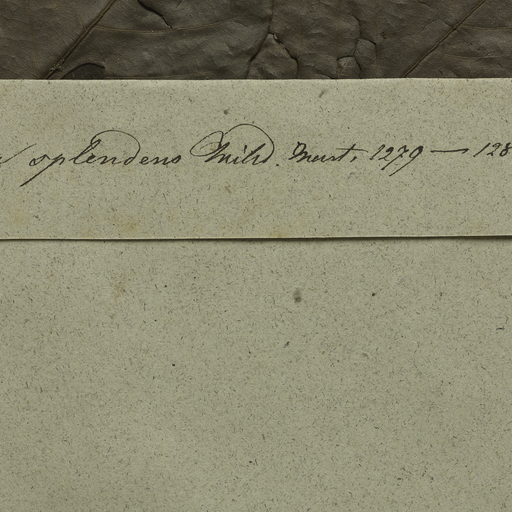 splendens Willd. Mart. 1279 — 128